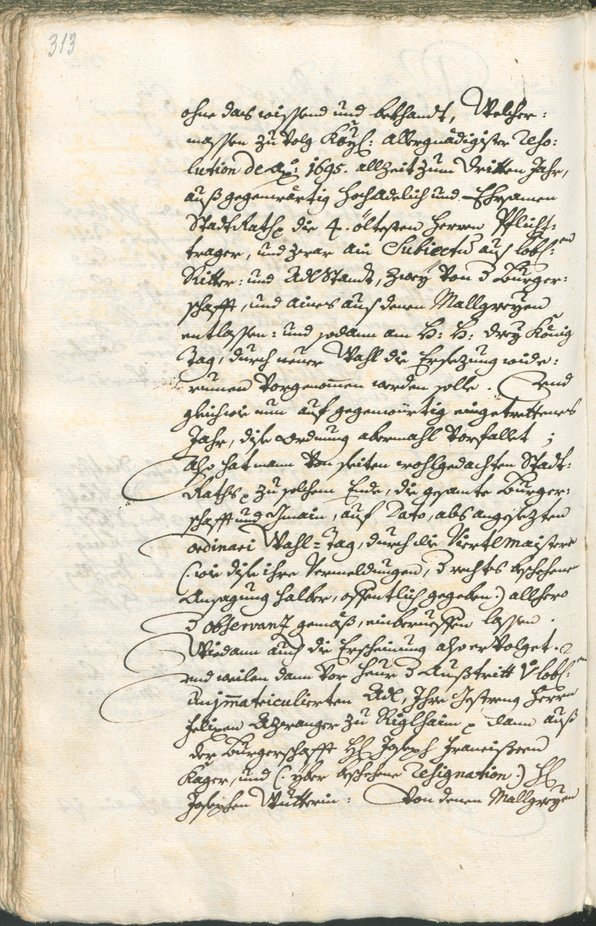 313
ohne das wissend und bekhandt, Welcher:
massen zu volg Kay: allergnädigister Reso:
lution de Ao: 1695. allzeit zum dritten Jahr,
auß gegenwärtig Hochadelich und Ehrsamen
Stadt Rath die 4. öltesten Herren Pflicht:
trager, und zwar ain Subiectum auß lobl:en
Ritter: und Adl Standt, zwey von d Burger:
schafft, und aines aus denen Mallgreyen
entlassen: und sodann am H: H: drey König
Tag, durch neuer Wahl die Ersezung wide:
rumen vorgenommen werden solle. Und
gleichwie nun auf gegenwürtig eingetrettenes
Jahr, dise ordnung abermahl vorfallet;
Also hat mann von seiten wohlgedachten Stadt:
Raths zu solchem Ende, die gesamte Burger:
schafft und Gmain, auf Dato, als angesezten
ordinari Wahl=Tag, durch die Viertlmaistere
(: wie dise ihre Vermeldungen, d rechts beschehene
Ansagung halber, offentlich gegeben:) allhero
d observanz gemäß, einberueffen lassen.
Wiedann auch die Erscheinung also ervolget.
und weilen dann vor heur d Außtritt v: lobl:en
immatriculierten Adl, Ihro Gestreng Herrn
Felixen Azwanger zu Riglhaim dann auß
der Burgerschafft HH Joseph Franciscen
Kager, und (: yber beschehene Resignation:) HH
Josephen Wutterin: Von denen Mallgreyen